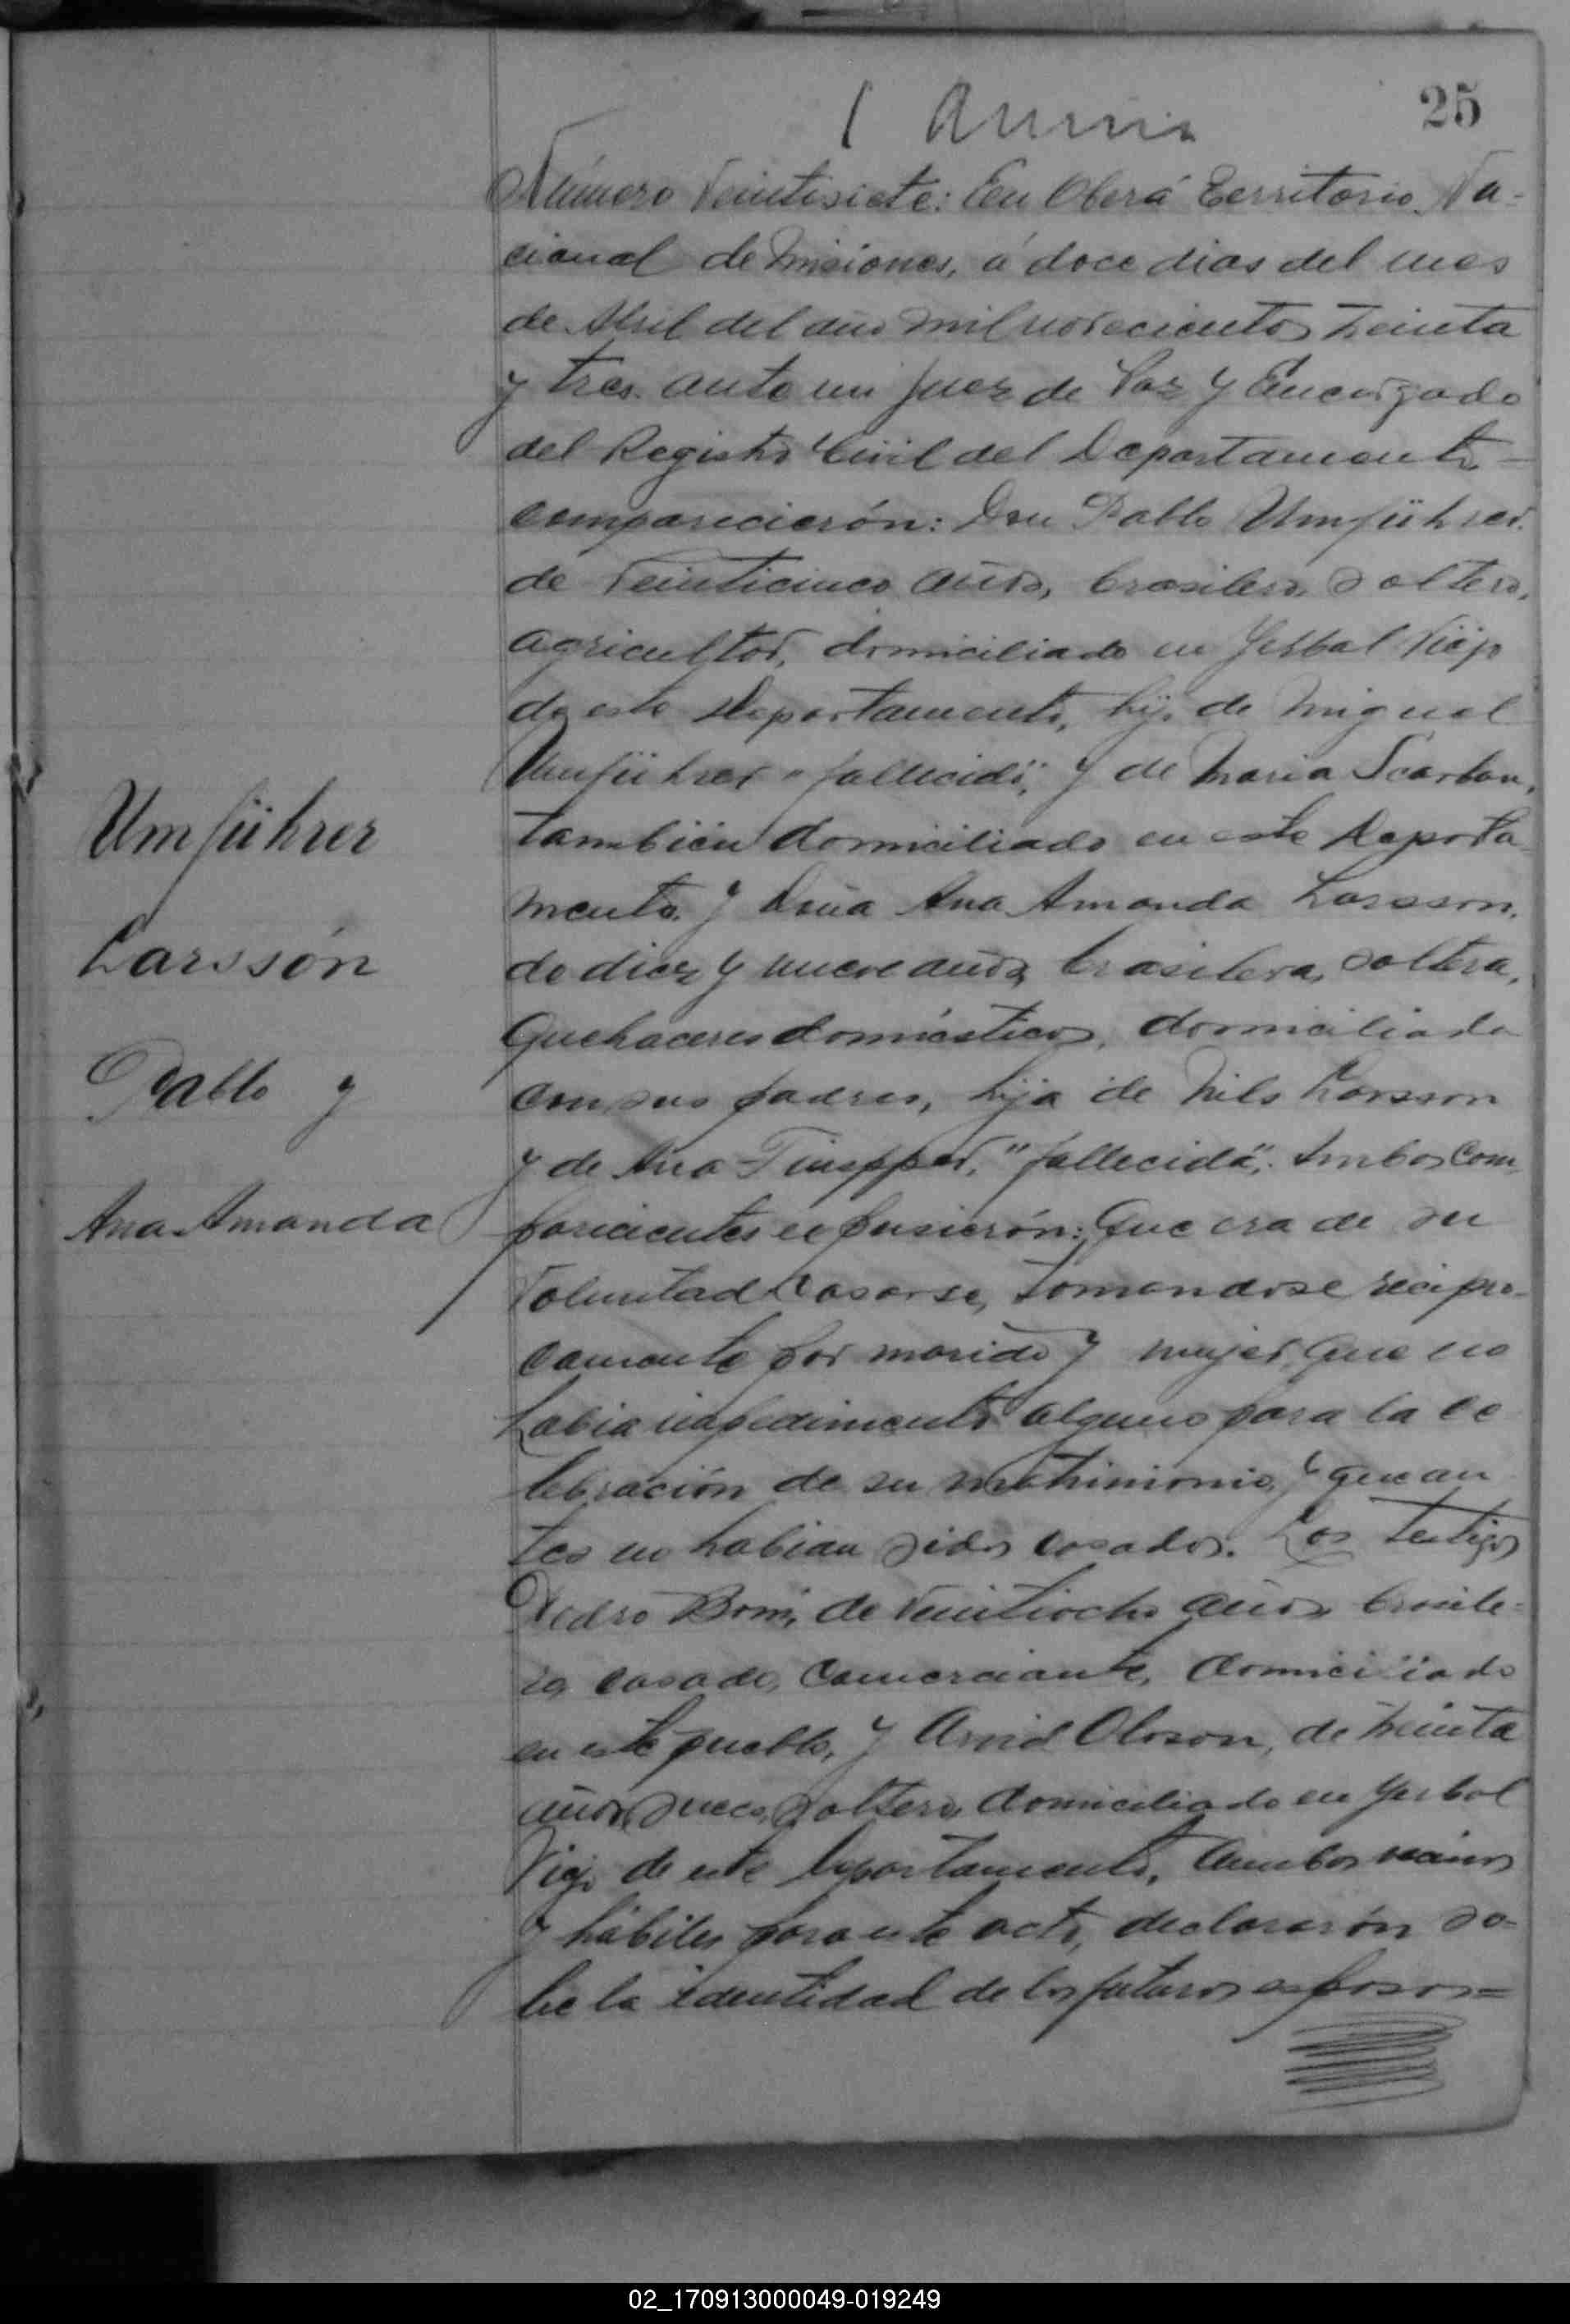 25
Número Veintisiete: En Oberá Territorio Na-
cional de Misiones, á doce dias del mes
de Abril del año mil novecientos treinta
y tres. ante mi Juez de Paz y Encargado
del Registro Civil del Departamento
comparecierón: Don Pablo Umführer.
de veinticinco años, brasilero, soltero,
agricultor, domiciliado en Yerbal Viejo
de este Departamento, hijo de Miguel
Umführer "fallecido", y de Maria Scarbon,
tambíen domiciliado en este Departa
mento. y Doña Ana Amanda Larsson,
de diez y nueve años, brasilera, soltera,
Quehaceres domésticos, domiciliada
con sus padres, hija de Nils Larsson
y de Ana "fallecida". Ambos com
parecientes expusierón: Que era de su
voluntad casarse, tomandose recipro-
camente por marido y mujer, que no
habia impedimento alguno para la ce
lebración de su matrimonio, y que an
tes no habian sidos casados. Los testigos
Pedro Bom, de veintiocho años, brasile-
ro, casado, comerciante, domiciliado
en este pueblo, y Arvid Olsson, de treinta
años, sueco, soltero, domiciliado en Yerbal
Viejo de este Departamento, ambos
y hábiles para este acto, declararón so-
bre la identidad de los futuros esposos=
Umführer
Larssón
Pablo y
Ana Amanda
02_170913000049-019249